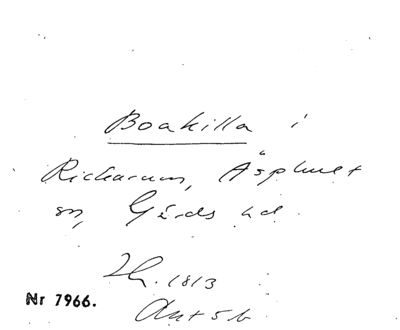 Boakilla i
Rickarum, Äsphult
sn, Gärds hd.
Lh. 1813
Nr 7966.
Ant 5 b